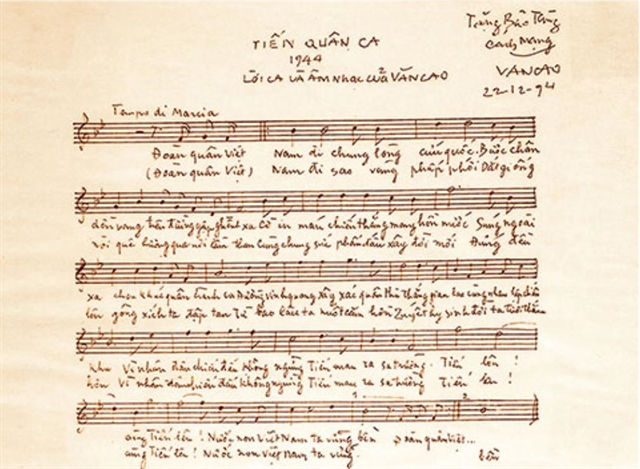 TIẾN QUÂN CA
1944
LỜI CA VÀ ÂM NHẠC CỦA VĂN CAO
Tặng Bảo Tàng
Cách Mạng
VĂN CAO
22-12-94
Tempo di Marcia
Đoàn quân Việt Nam đi chung lòng cứu quốc. Bước chân
(Đoàn quân Việt) Nam đi sao vàng phấp phới Dắt giống
dồn vang trên đường gập ghềnh xa. Cờ in máu chiến thắng mang hồn nước Súng ngoài
nòi quê hương qua nơi lầm than Cùng chung sức phấn đấu xây đời mới Đứng đều
xa chen khúc quân hành ca Đường vinh quang xây xác quân thù Thắng gian lao cùng nhau lập chiến
lên gông xích ta đập tan Từ bao lâu ta nuốt căm hờn Quyết hy sinh đời ta tươi thắm
khu Vì nhân dân chiến đấu không ngừng Tiến mau ra sa trường. Tiến lên!
hơn Vì nhân dân chiến đấu không ngừng Tiến mau ra sa trường Tiến lên!
cùng Tiến lên! Nước non Việt Nam ta vững bền Đoàn quân Việt...
cùng Tiến lên! Nước non Việt Nam ta vững. bền